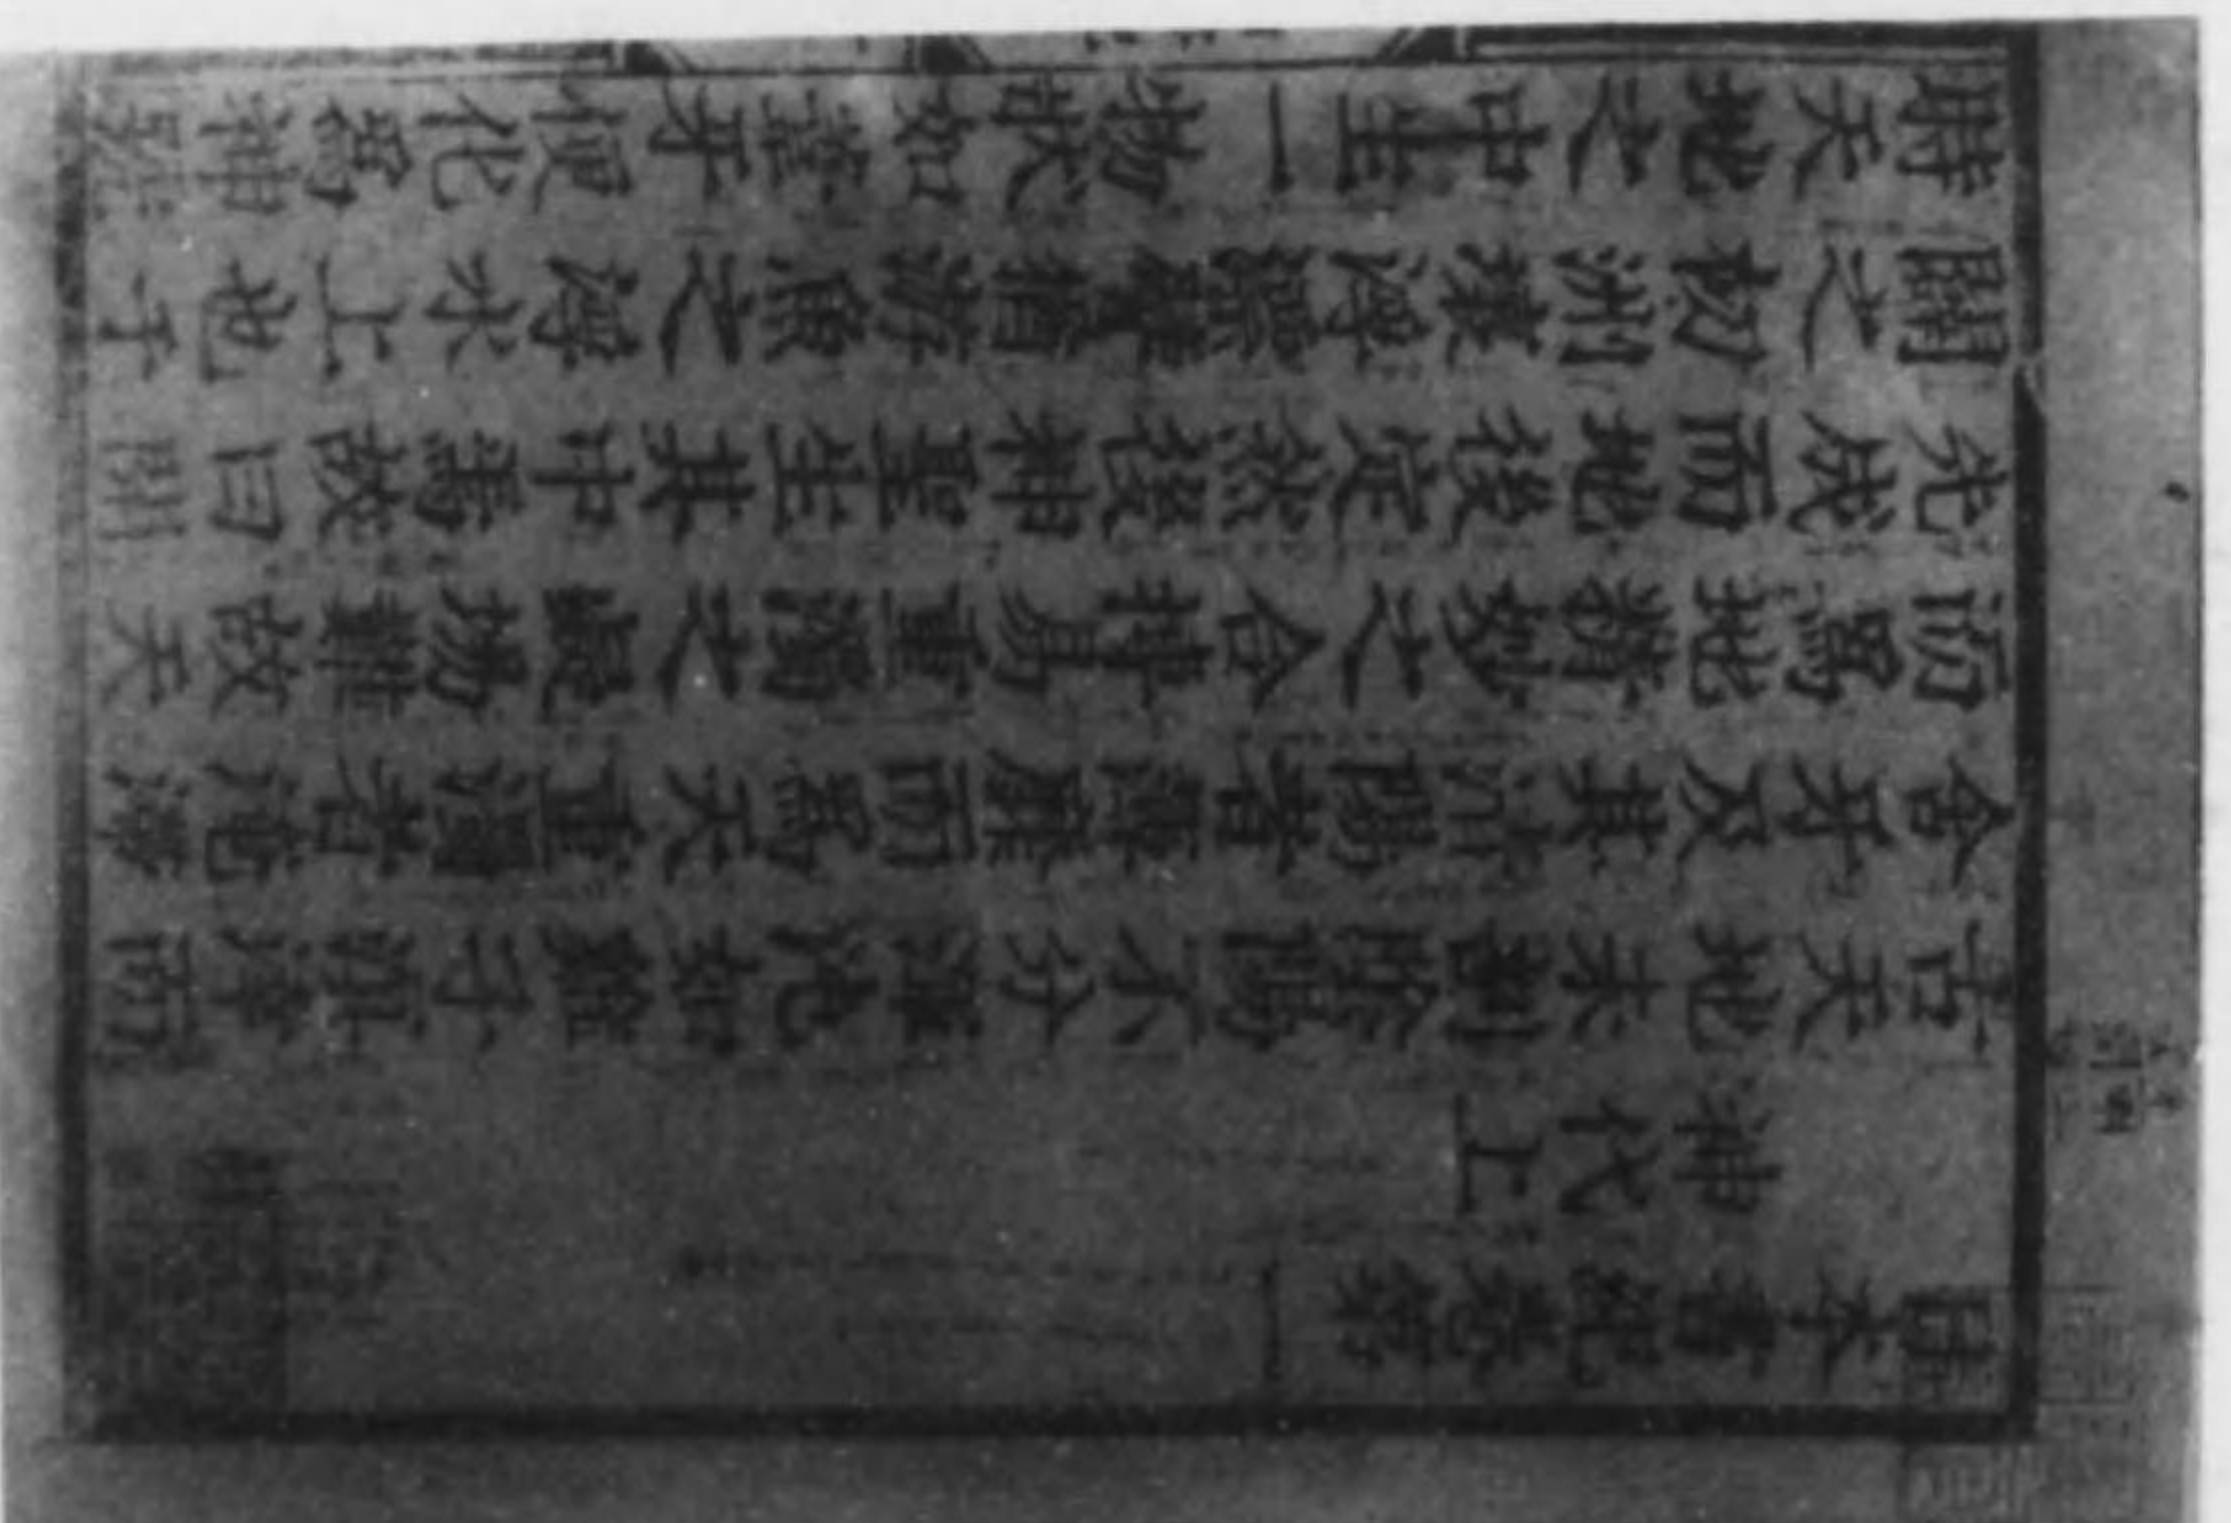 日本書紀卷第一
神代上
古天地未剖陰陽不分渾沌如鷄子溟涬而
含牙及其清陽者薄靡而爲天重濁者淹滯
而爲地精妙之合搏易重濁之凝場難故天
先成而地後定然後神聖生其中焉故曰開
闢之初洲壤浮漂譬猶游魚之浮水上也于
時天地之中生一物狀如葦牙便化爲神號